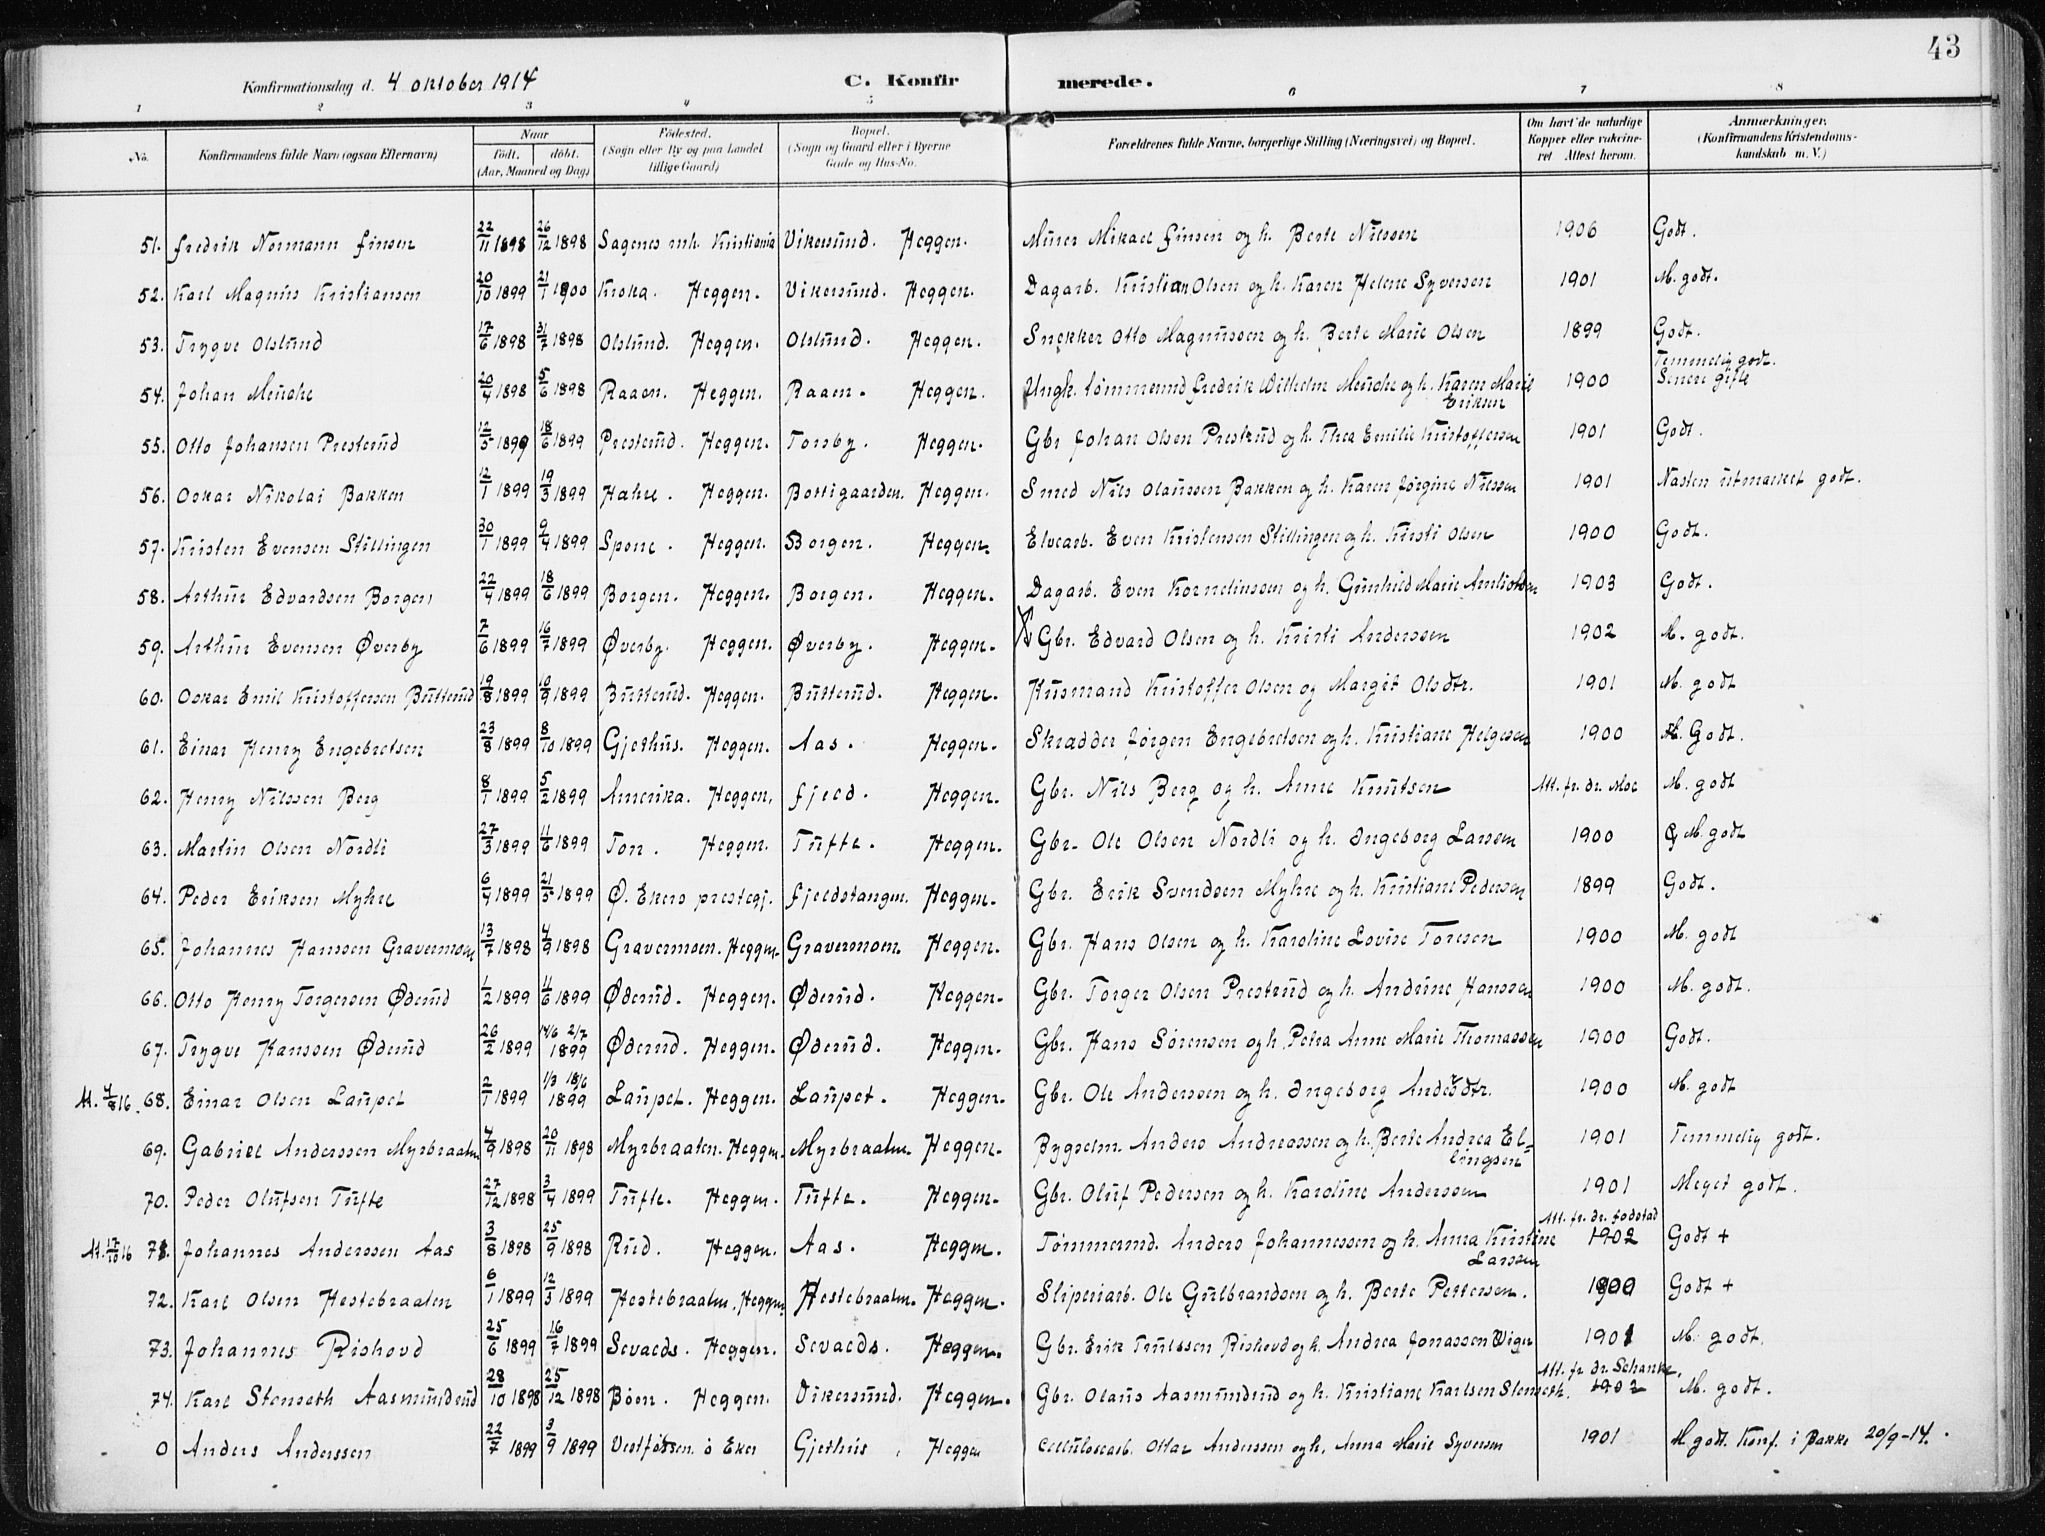 43
Konfirmationsdag d. 4 oktober 1914 C. Konfirmerede.
1 2 3 4 5 6 7 8
No. Konfirmandens fulde Navn (ogsaa Efternavn) Naar født. døbt. (Aar, Maaned og Dag) Fødested. (Sogn eller By og paa Landet tillige Gaard) Bopæl. (Sogn og Gaard eller i Byerne Gade og Hus-No. Forældrenes fulde Navne, borgerlige Stilling (Næringsvei) og Bopæl. Om havt de naturlige Kopper eller vakcineret Attest herom. Anmærkninger. (Konfirmandens Kristendomskundskab m. V.)
51. Fredrik Normann Finsen 22/11 1898 26/12 1898 Sagenes mh. Kristiania Vikersund. Heggen. Murer Mikael Finsen og h. Berte Nilssen 1906 Godt.
52. Karl Magnus Kristiansen 20/10 1899 21/1 1900 Kroka. Heggen. Vikersund. Heggen. Dagarb. Kristian Olsen og h. Karen Helene Syversen 1901 M. godt.
53. Trygve Olslund 17/6 1898 31/7 1898 Olslund. Heggen. Olslund. Heggen. Snekker Otto Magnussen og h. Berte Marie Olsen 1899 Godt.
54. Johan Menche 20/4 1898 5/6 1898 Raaen. Heggen. Raaen. Heggen. Ungk. tømmermd Fredrik Wilhelm Menche og h. Karen Marie Eriksen 1900 Temmelig godt. Senere gifte
55. Otto Johansen Presterud 12/5 1899 18/6 1899 Presterud. Heggen. Torsby. Heggen. Gbr Johan Olsen Prestrud og h. Thea Emilie Kristoffersen 1901 Godt.
56. Oskar Nikolai Bakken 12/1 1899 19/3 1899 Hahre. Heggen. Bottigaarden. Heggen. Smed Nils Olaussen Bakken og h. Karen Jørgine Nilssen 1901 Næsten utmærket godt.
57. Kristen Evensen Stillingen 30/1 1899 9/4 1899 Spone. Heggen. Borgen. Heggen. Elvearb. Even Kristensen Stillingen og h. Kristi Olsen 1900 Godt.
58. Arthur Edvardsen Borgen 22/4 1899 18/6 1899 Borgen. Heggen. Borgen. Heggen. Dagarb. Even Korneliussen og h. Gunhild Marie 1903 Godt.
59. Arthur Evensen Øverby 7/6 1899 16/7 1899 Øverby. Heggen. Øverby. Heggen. Gbr. Edvard Olsen og h. Kristi Anderssen 1902 M. godt.
60. Oskar Emil Kristoffersen Butterud 19/8 1899 10/9 1899 Butterud. Heggen. Butterud. Heggen. Husmand Kristoffer Olsen og Margit Olsdtr. 1901 M. godt
61. Einar Henry Engebretsen 23/8 1899 8/10 1899 Gjethus. Heggen. Aas. Heggen. Skrædder Jørgen Engebretsen og h. Kristiane Helgesen 1900 Godt.
62. Henry Nilssen Berg 8/1 1899 5/2 1899 Amerika. Heggen. Fjeld. Heggen. Gbr. Nils Berg og h. Anne Knutsen Att. fr. dr. Moe M. godt
63. Martin Olsen Nordli 27/3 1899 11/6 1899 Ton. Heggen. Tufte. Heggen. Gbr. Ole Olsen Nordli og h. Ingeborg Larssen 1900 M. godt
64. Peder Eriksen Myhre 6/4 1899 21/5 1899 Ø. Ekers prestegj. Fjeldstangen. Heggen. Gbr. Erik Svendsen Myhre og h. Kristiane Pedersen 1899 Godt.
65. Johannes Hanssen Gravermoen 13/7 1898 4/9 1898 Gravermoen. Heggen. Gravermoen. Heggen. Gbr. Hans Olsen og h. Karoline Lovise Toresen 1900 M. godt
66. Otto Henry Torgersen Øderud 1/2 1899 11/6 1899 Øderud. Heggen. Øderud. Heggen. Gbr. Torger Olsen Prestrud og h. Andrine Hanssen 1900 M. godt.
67. Trygve Hanssen Øderud 26/2 1899 14/6 2/7 1899 Øderud. Heggen. Øderud. Heggen. Gbr. Hans Sørensen og h. Petra Anne Marie Thomassen 1900 Godt.
At. 4/8 16. 68. Einar Olsen Laupet 2/1 1899 1/3 18/6 1899 Laupet. Heggen. Laupet. Heggen. Gbr. Ole Anderssen og h. Ingeborg Andersdtr. 1900 M. godt
69. Gabriel Anderssen Myrbraaten 4/9 1898 20/11 1898 Myrbraaten. Heggen. Myrbraaten. Heggen. Bygselm. Anders Andreassen og h. Berte Andrea Ellingsen 1901 Temmelig godt.
70. Peder Olufsen Tufte 27/12 1898 3/4 1899 Tufte. Heggen. Tufte. Heggen. Gbr. Oluf Pedersen og h. Karoline Anderssen 1901 Meget godt.
At. 17/10 16 71. Johannes Anderssen Aas 3/8 1898 25/9 1898 Rud. Heggen. Aas. Heggen. Tømmermd. Anders Johannessen og h. Anna Kristine Larssen Att. fr. dr. Fodstad 1902 Godt +
72. Karl Olsen Hestebraaten 6/1 1899 12/3 1899 Hestebraaten. Heggen Hestebraaten. Heggen. Sliperiarb. Ole Gulbrandsen og h. Berte Pettersen. 1900 Godt +
73. Johannes Rishovd 25/6 1899 16/7 1899 Sevalds. Heggen. Sevalds. Heggen. Gbr. Erik Trulssen Rishovd og h. Andrea Jonassen Wiger 1901 M. godt.
74. Karl Stenseth Aasmundrud 28/10 1898 25/12 1898 Bøen. Heggen. Vikersund. Heggen. Gbr. Olaus Aasmundrud og h. Kristiane Karlsen Stenseth. Att. fr dr. Schanke. 1902 M. godt.
0 Anders Anderssen 22/7 1899 3/9 1899 Vestfossen ø Eker Gjethus, Heggen Cellulosearb. Ottar Anderssen og h. Anna Marie Syversen 1901 M godt. Konf. i Bakke 20/9-14.